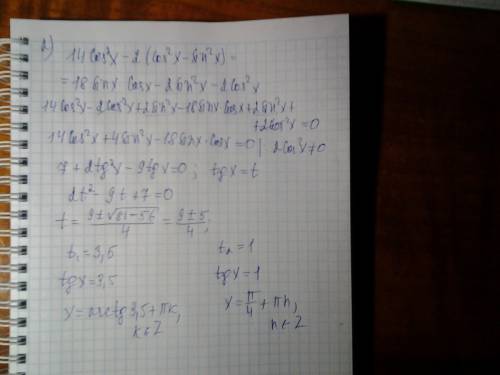 2)
14cos²x - 2(cos²x - sin²x) =
= 18sinx cosx - 2sin²x - 2cos²x
14cos²x - 2cos²x + 2sin²x - 18sinx·cosx + 2sin²x +
+ 2cos²x = 0
14cos²x + 4sin²x - 18sinx·cosx = 0 | 2cos²x ≠ 0
7 + 2tg²x - 9tgx = 0; tgx = t
2t² - 9t + 7 = 0
t = (9 ± √81-56)/4 = (9 ± 5)/4;
t₁ = 3,5 t₂ = 1
tgx = 3,5 tgx = 1
x = arctg3,5 + πk, x = π/4 + πn,
k ∈ Z n ∈ Z